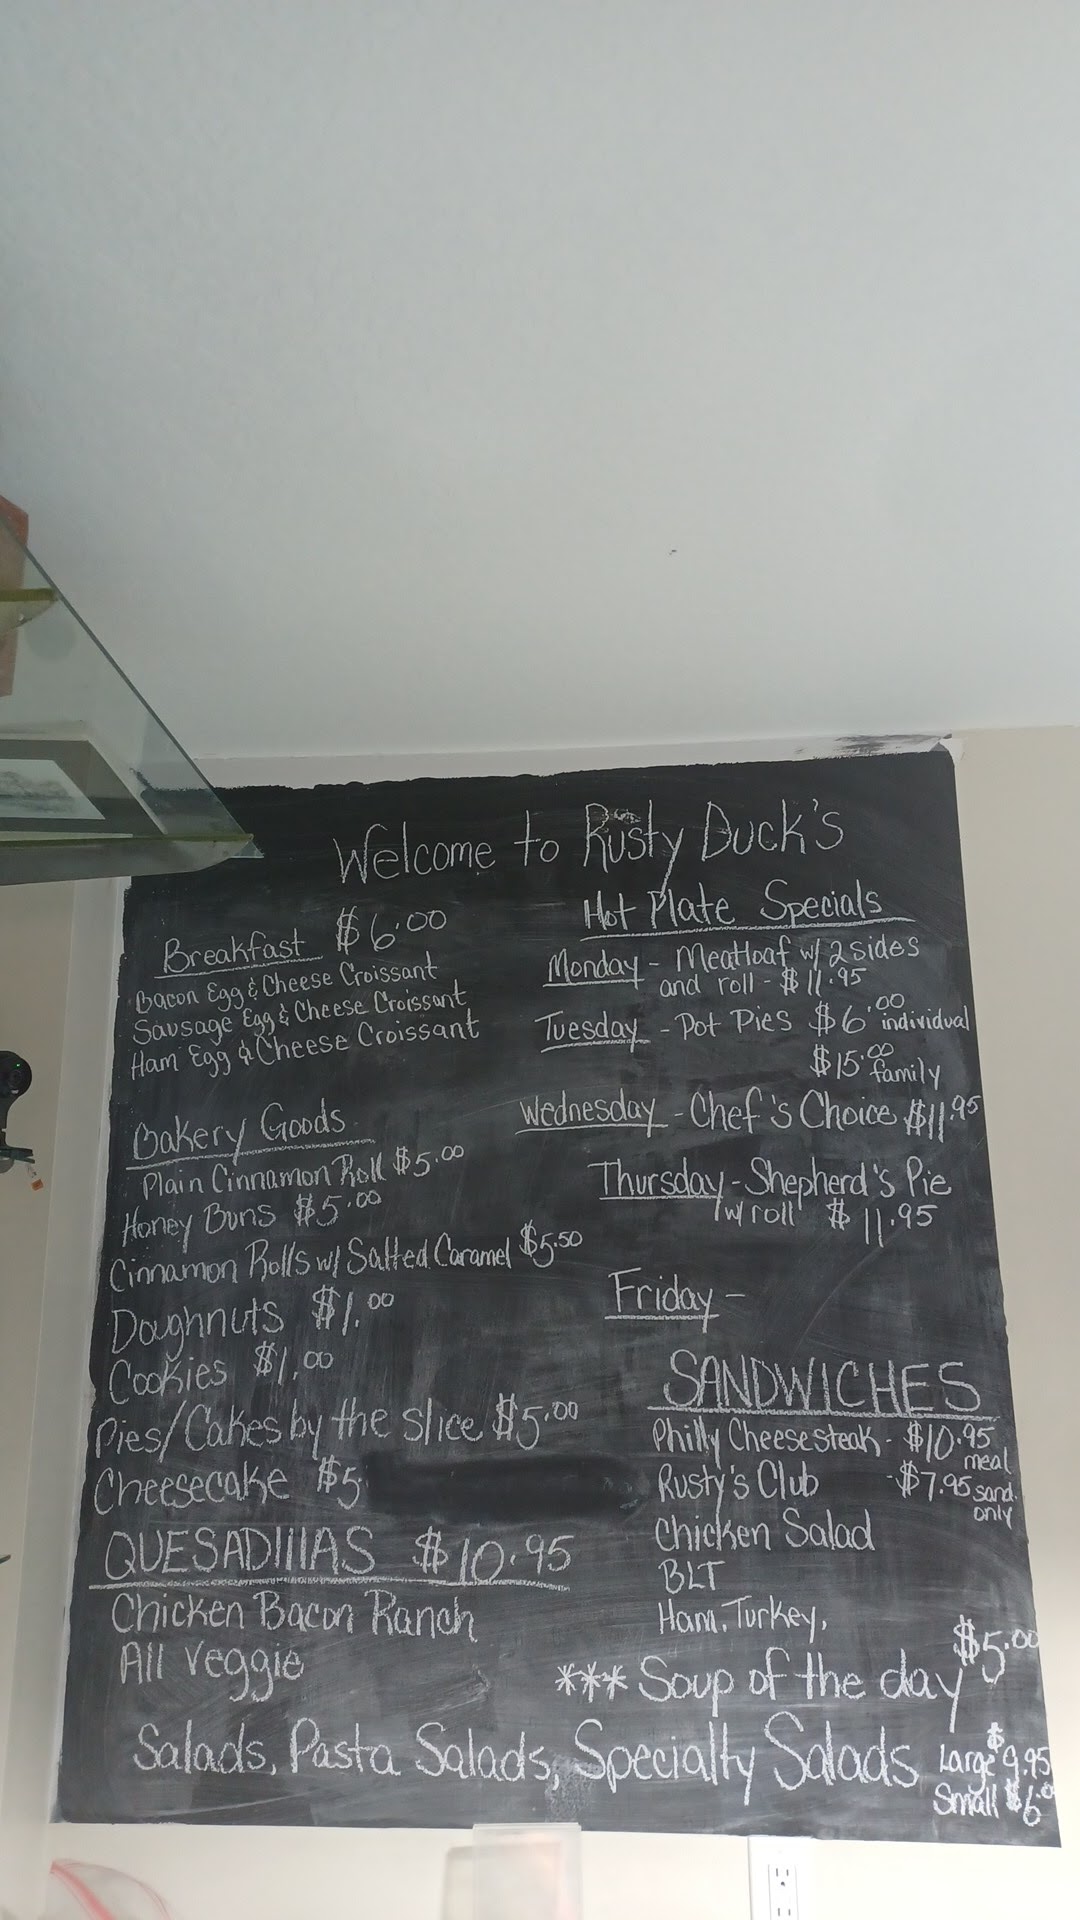 Welcome to Rusty Duck's
Breakfast $6.00
Bacon Egg & Cheese Croissant
Sausage Egg & Cheese Croissant
Ham Egg & Cheese Croissant
Bakery Goods
Plain Cinnamon Roll $5.00
Honey Buns $5.00
Cinnamon Rolls w/ Salted Caramel $5.50
Doughnuts $1.00
Cookies $1.00
Pies/Cakes by the slice $5.00
Cheesecake $5
QUESADIllAS $10.95
Chicken Bacon Ranch
All Veggie
Hot Plate Specials
Monday - Meatloaf w/ 2 sides
and roll - $11.95
Tuesday - Pot Pies $6.00 individual
$15.00 family
Wednesday - Chef's Choice $11.95
Thursday - Shepherd's Pie
w/ roll $11.95
Friday -
SANDWICHES
Philly Cheesesteak - $10.95 meal
Rusty's Club - $7.95 sand. only
Chicken Salad
BLT
Ham, Turkey,
*** Soup of the day $5.00
Salads, Pasta Salads, Specialty Salads Large $9.95
Small $6.0